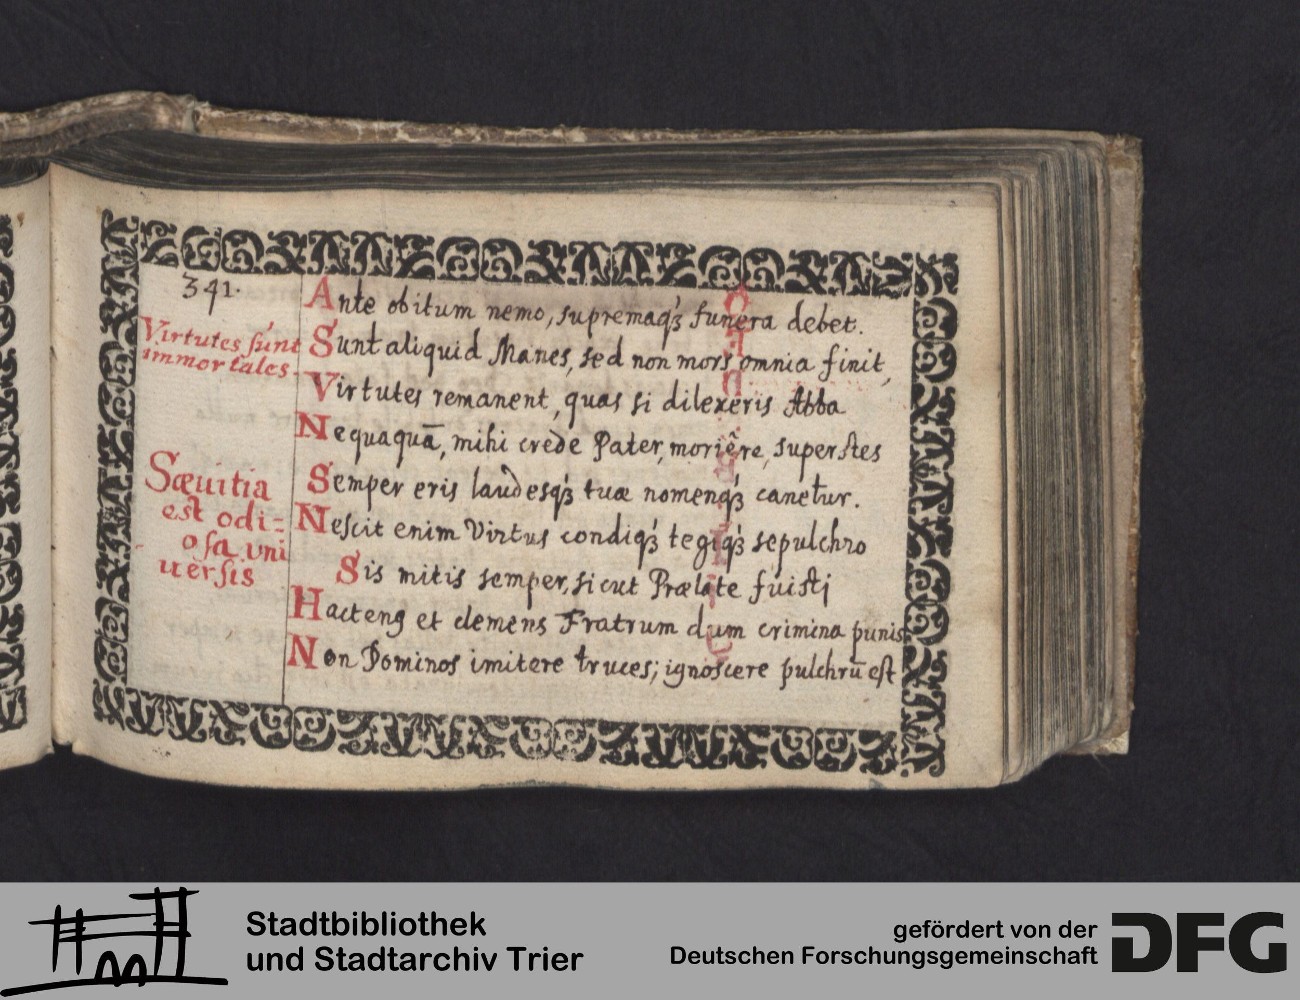 341.
Virtutes sunt
immortales.
Sæuitia
est odi=
osa uni
uersis
Ante obitum nemo, supremaqꝫ funera debet.
Sunt aliquid Manes, sed non mors omnia finit,
Virtutes remanent, quas si dilexeris Abba
Nequaquā, mihi crede Pater, moriêre, superstes
Semper eris laudesqꝫ tuæ nomenqꝫ canetur.
Nescit enim Virtus condiqꝫ tegiqꝫ sepulchro
Sis mitis semper, sicut Prælate fuisti
Hactenꝰ et clemens Fratrum dum crimina punis
Non Dominos imitere truces; ignoscere pulchrū est
Stadtbibliothek
und Stadtarchiv Trier
gefördert von der
Deutschen Forschungsgemeinschaft
DFG